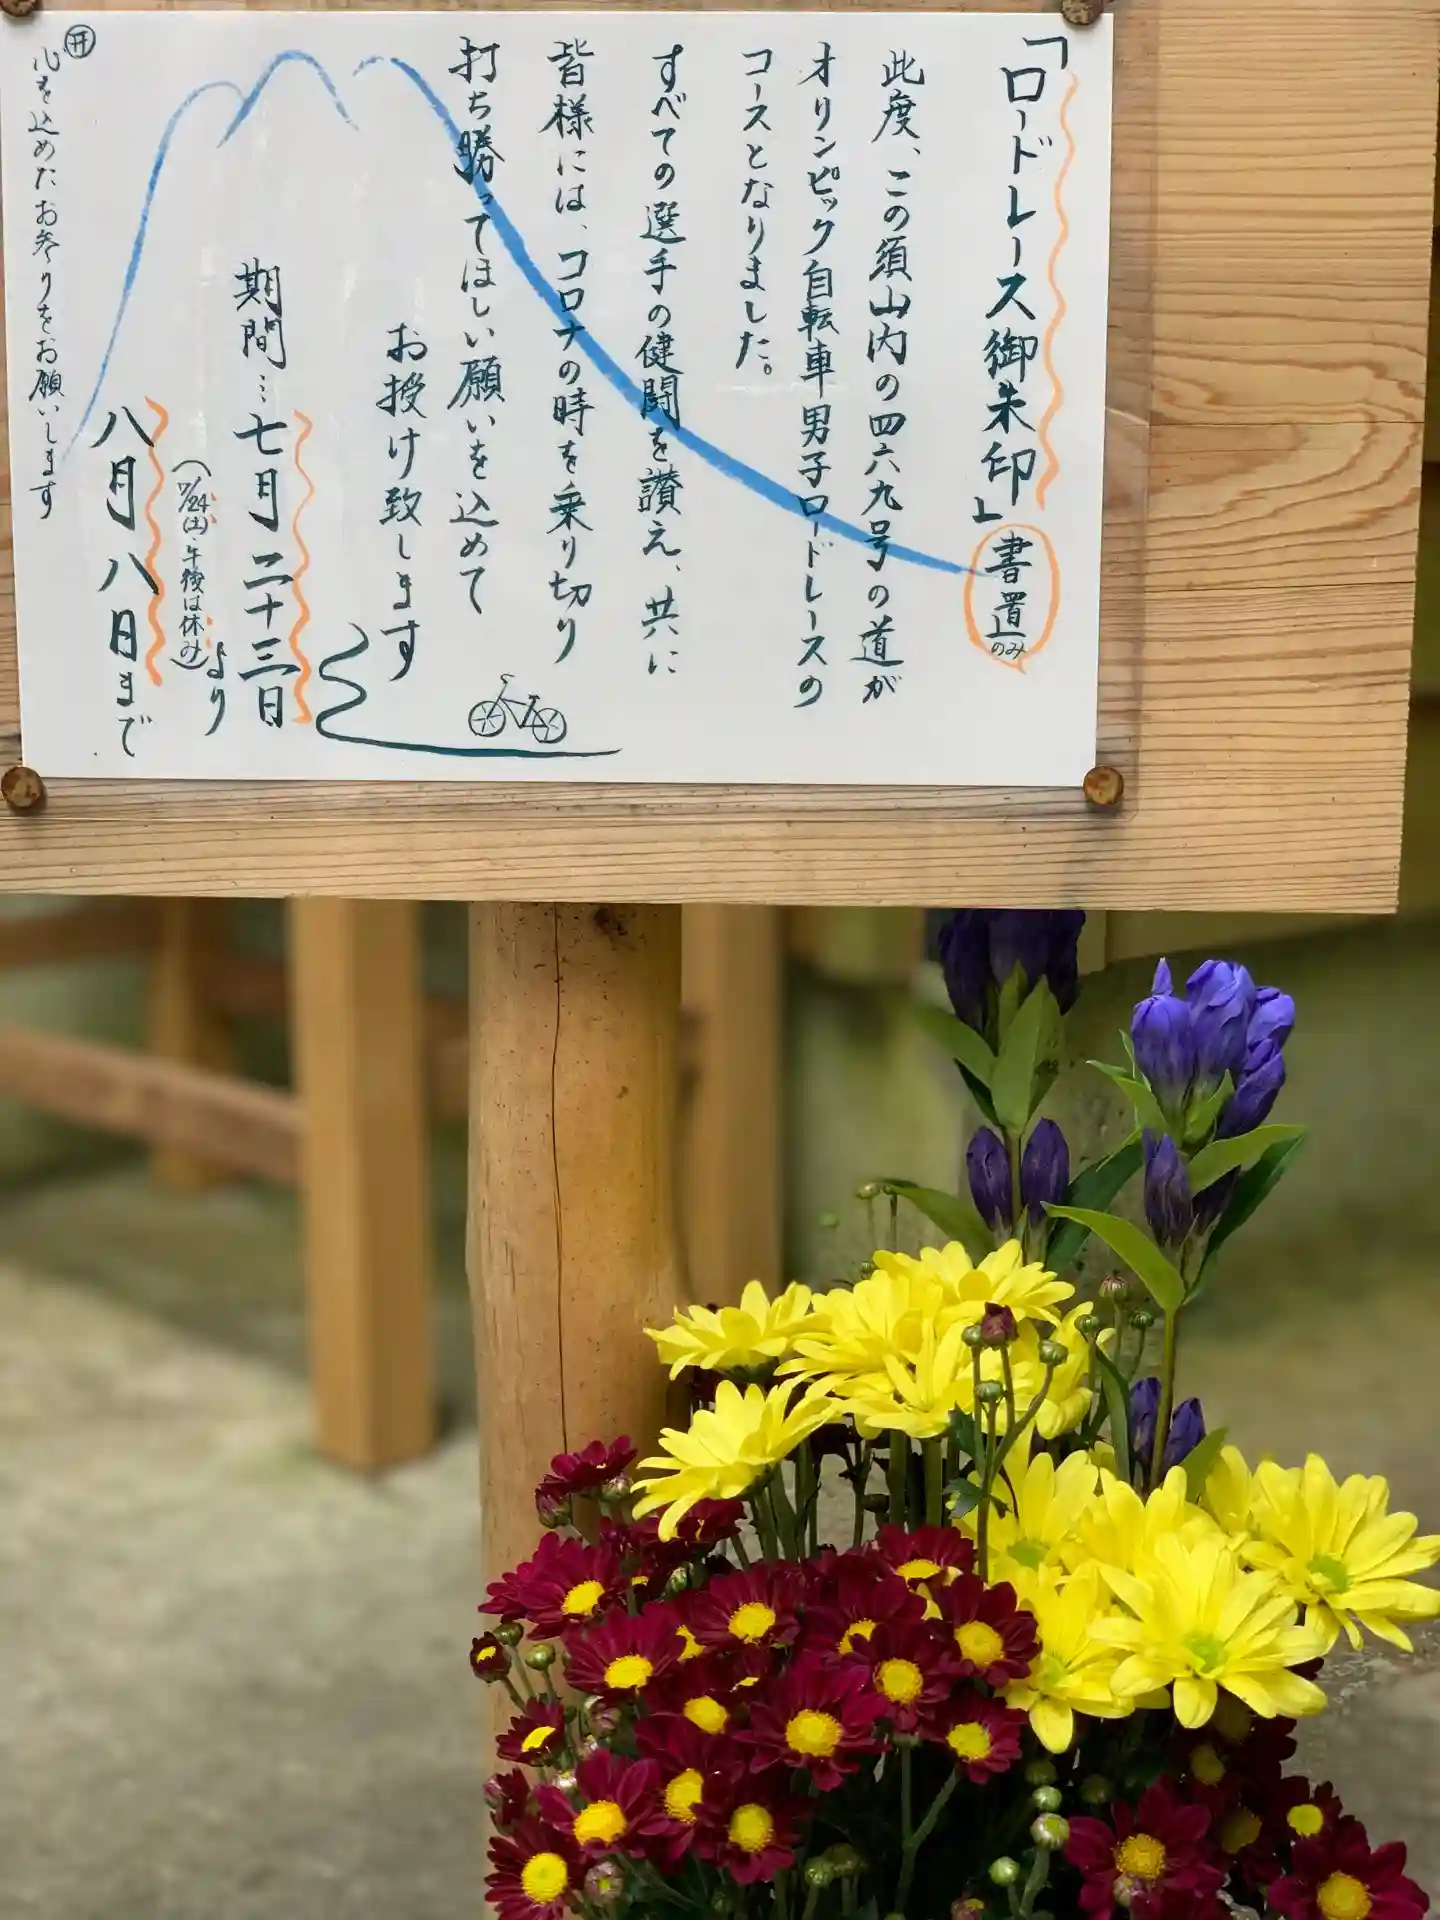 「ロードレース御朱印」書置のみ
此度、この須山内の四六九号の道が
オリンピック自転車男子ロードレースの
コースとなりました。
すべての選手の健闘を讃え、共に
皆様には、コロナの時を乗り切り
打ち勝ってほしい願いを込めて
お授け致します
期間…七月二十三日より
(7/24(土)午後は休み)
八月八日まで
心を込めたお参りをお願いします